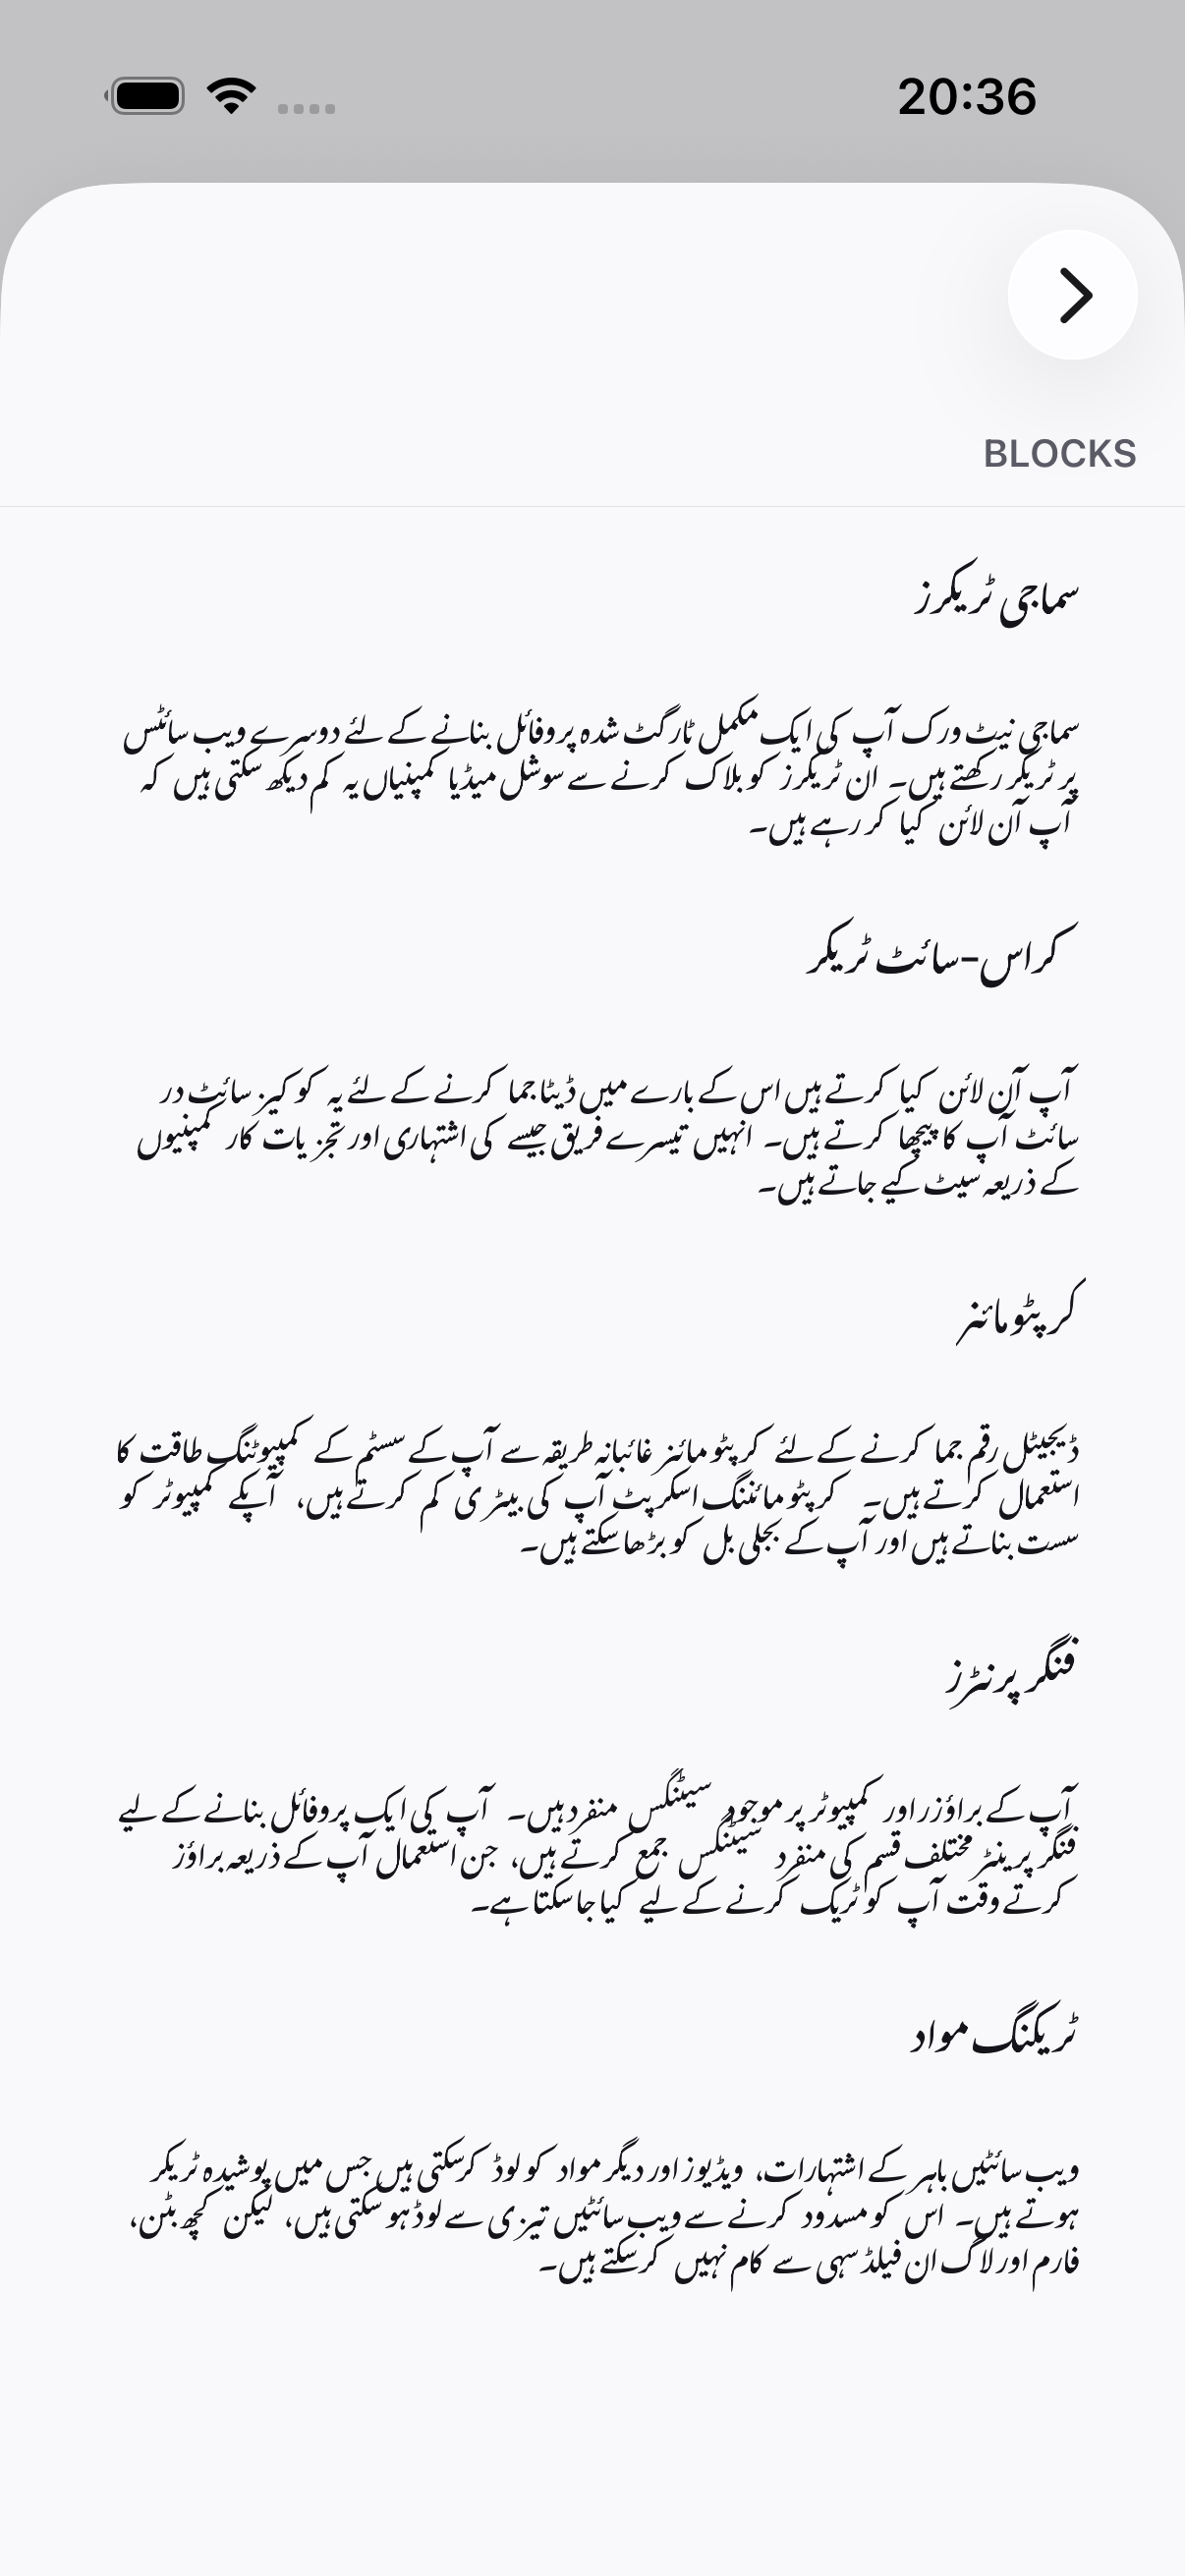 20:36
BLOCKS
سماجی ٹریکرز
سماجی نیٹ ورک آپ کی ایک مکمل ٹارگٹ شدہ پروفائل بنانے کے لئے دوسرے ویب سائٹس
پر ٹریکر رکھتے ہیں۔ ان ٹریکرز کو بلاک کرنے سے سوشل میڈیا کمپنیاں یہ کم دیکھ سکتی ہیں کہ
آپ آن لائن کیا کر رہے ہیں۔
کراس-سائٹ ٹریکر
آپ آن لائن کیا کرتے ہیں اس کے بارے میں ڈیٹا جما کرنے کے لئے یہ کوکیز سائٹ در
سائٹ آپ کا پیچھا کرتے ہیں۔ انہیں تیسرے فریق جیسے کی اشتہاری اور تجزیات کار کمپنیوں
کے ذریعہ سیٹ کیے جاتے ہیں۔
کرپٹومائنر
ڈیجیٹل رقم جما کرنے کے لئے کرپٹومائنز غائبانہ طریقہ سے آپ کے سسٹم کے کمپیوٹنگ طاقت کا
استعمال کرتے ہیں۔ کرپٹومائننگ اسکرپٹ آپ کی بیٹری کم کرتے ہیں، آپکے کمپیوٹر کو
سست بناتے ہیں اور آپ کے بجلی بل کو بڑھا سکتے ہیں۔
فنگر پرنٹرز
آپ کے براؤزر اور کمپیوٹر پر موجود سیٹنگس منفرد ہیں۔ آپ کی ایک پروفائل بنانے کے لیے
فنگر پرینٹر مختلف قسم کی منفرد سیٹنگس جمع کرتے ہیں، جن استعمال آپ کے ذریعہ براؤز
کرتے وقت آپ کو ٹریک کرنے کے لیے کیا جا سکتا ہے۔
ٹریکنگ مواد
ویب سائٹیں باہر کے اشتہارات، ویڈیوز اور دیگر مواد کو لوڈ کرسکتی ہیں جس میں پوشیدہ ٹریکر
ہوتے ہیں۔ اس کو مسدود کرنے سے ویب سائٹیں تیزی سے لوڈ ہو سکتی ہیں، لیکن کچھ بٹن،
فارم اور لاگ ان فیلڈ سہی سے کام نہیں کرسکتے ہیں۔